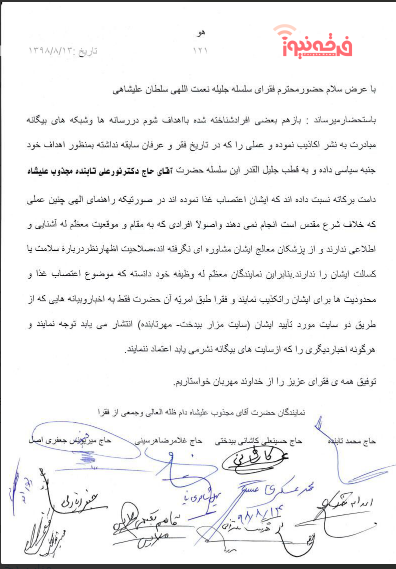 هو
۱۲۱
فرقه نیوز
تاریخ :۱۳۹۸/۸/۱۳
با عرض سلام حضورمحترم فقرای سلسله جلیله نعمت اللهی سلطان علیشاهی
باستحضارمیرساند : بازهم بعضی افرادشناخته شده بااهداف شوم دررسانه ها وشبکه های بیگانه
مبادرت به نشر اکاذیب نموده و عملی را که در تاریخ فقر و عرفان سابقه نداشته بمنظور اهداف خود
جنبه سیاسی داده و به قطب جلیل القدر این سلسله حضرت آقای حاج دکترنورعلی تابنده مجذوب علیشاه
دامت برکاته نسبت داده اند که ایشان اعتصاب غذا نموده اند در صورتیکه راهنمای الهی چنین عملی
که خلاف شرع مقدس است انجام نمی دهند واصولاً افرادی که به مقام و موقعیت معظّم له آشنایی و
اطلاعی ندارند و از پزشکان معالج ایشان مشاوره ای نگرفته اند،صلاحیت اظهارنظردربارۀ سلامت یا
کسالت ایشان را ندارند.بنابراین نمایندگان معظم له وظیفه خود دانسته که موضوع اعتصاب غذا و
محدودیت ها برای ایشان راتکذیب نمایند و فقرا طبق امریّه آن حضرت فقط به اخباروبیانه هایی که از
طریق دو سایت مورد تأیید ایشان (سایت مزار بیدخت- مهرتابنده) انتشار می یابد توجه نمایند و
هرگونه اخباردیگری را که ازسایت های بیگانه نشرمی یابد اعتماد ننمایند.
توفیق همه ی فقرای عزیز را از خداوند مهربان خواستاریم.
نمایندگان حضرت آقای مجذوب علیشاه دام ظله العالی وجمعی از فقرا
حاج محمد تابنده حاج حسینعلی کاشانی بیدختی حاج غلامرضاهرسینی حاج میریونس جعفری اصل
۹۸/۸/۱۳